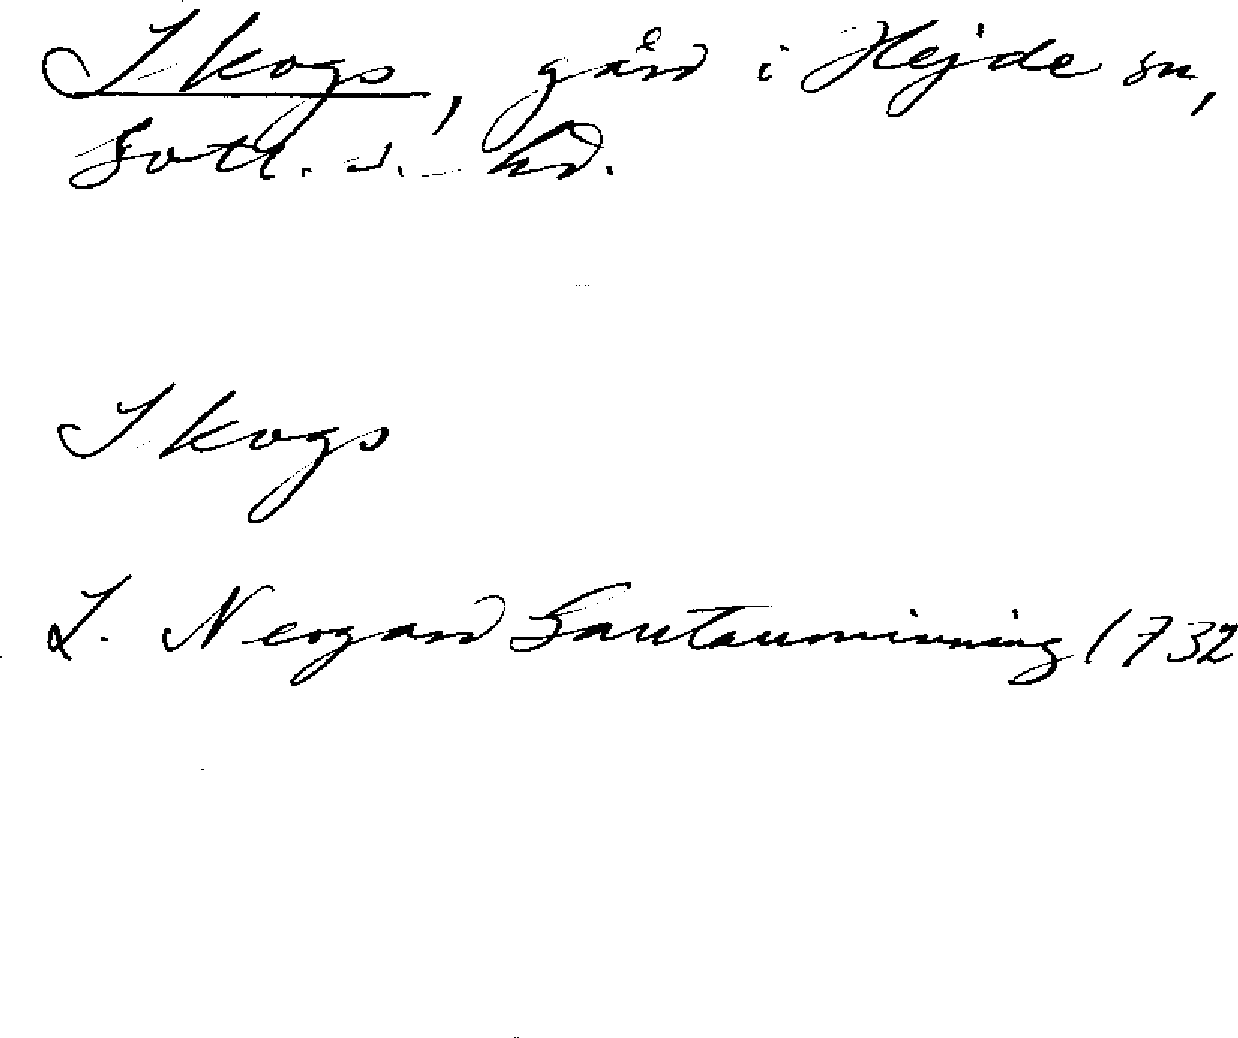 Skogs, gård i Hejde sn,
Gotl. s. hd.
Skogs
L. Neogard Gautauminning 1732